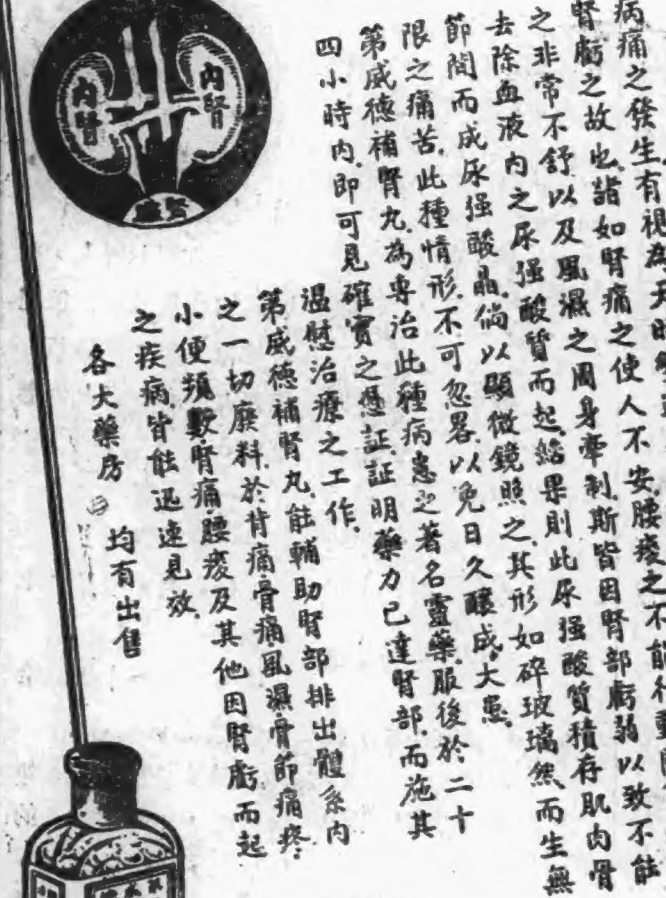 病痛之發生有視為天時
腎虧之故也諸如腎痛之使人不安腰痠之不能
之非常不舒以及風濕之周身牽制斯皆因腎部虧弱以致不能
去除血液內之尿强酸質而起結果則此尿强酸質積存肌肉骨
節間而成尿强酸晶倘以顯微鏡照之其形如碎玻璃然而生無
限之痛苦此種情形不可忽畧以免日久釀成大患
第威德補腎丸為專治此種病患之著名靈藥服後於二十
四小時內即可見確實之憑証証明藥力已達腎部而施其
溫慰治療之工作
第威德補腎丸能輔助腎部排出體系內
之一切廢料於背痛骨痛風濕骨節痛疼
小便頻數腎痛腰痠及其他因腎虧而起
之疾病皆能迅速見效
各大藥房均有出售
內腎
內腎